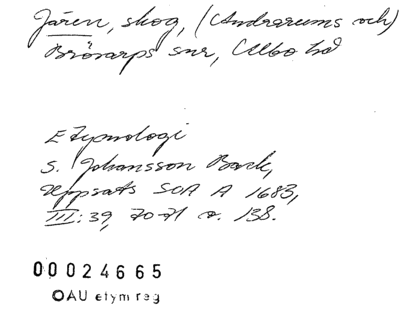 Jären, skog, (Andrarums och)
Brösarps snr, Albo hd
Etymologi
S. Johansson Back,
Uppsats SOA A 1683,
III: 39, 70-71 o. 138.
00024665
OAU etym reg